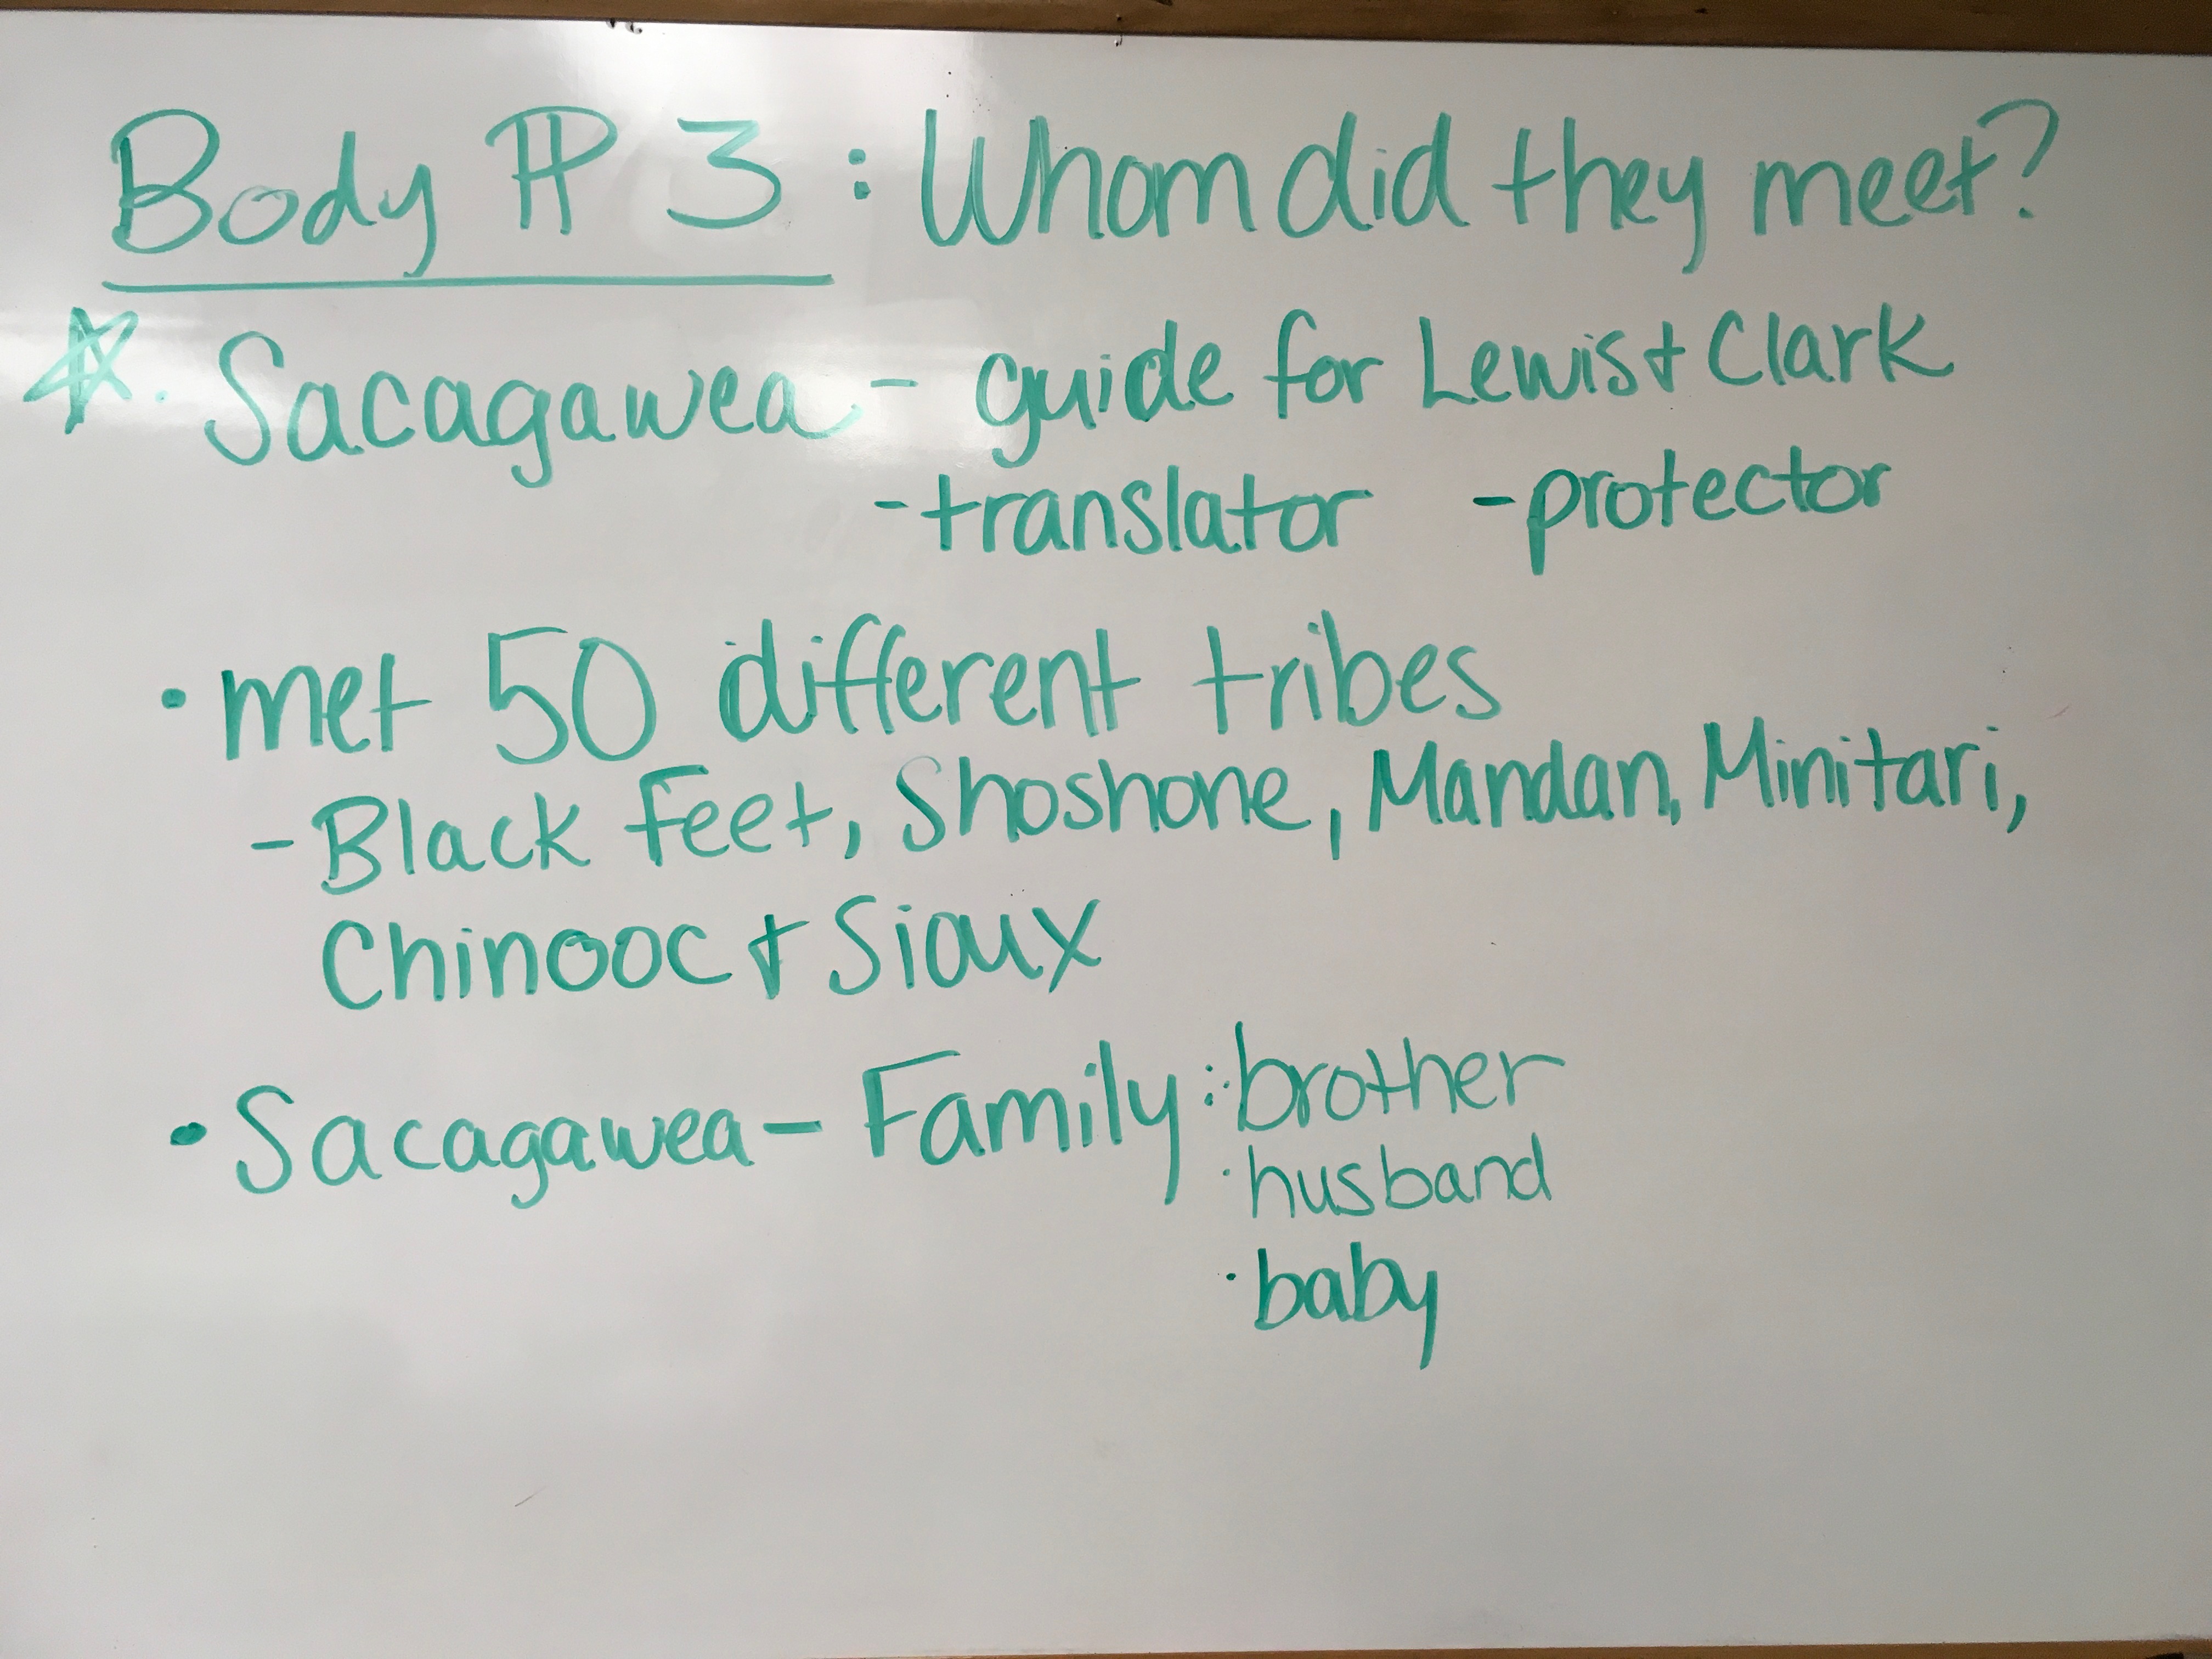 Body ¶ 3 : Whom did they meet?
☆ • Sacagawea - guide for Lewis + Clark
- translator - protector
• met 50 different tribes
- Black Feet, Shoshone, Mandan, Minitari,
Chinooc + Sioux
• Sacagawea - Family : • brother
• husband
• baby